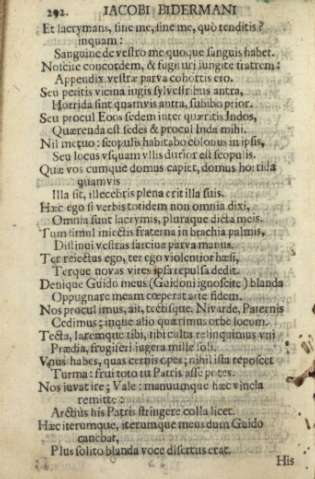 292. IACOBI BIDERMANI
Et lacrymans, sine me, sine me, quò tenditis?
inquam:
Sanguine de vestro me quoque sanguis habet.
Noscite concordem, & fugituri iungite fratrem:
Appendix vestræ parva cohortis ero.
Seu petitis vicina iugis sylvestribus antra,
Horrida sint quamvis antra, subibo prior.
Seu procul Eoos sedem inter quæritis Indos,
Quærenda est sedes & procul Inda mihi.
Nil metuo: scopulis habitabo colonus in ipsis,
Seu locus vsquam vllis durior est scopulis.
Quæ vos cumque domus capiet, domus horrida
quamvis
Illa sit, illecebris plena erit illa suis.
Hæc ego si verbis totidem non omnia dixi,
Omnia sunt lacrymis, pluraque dicta meis.
Tum simul iniectis fraterna in brachia palmis,
Distinui vestras sarcina parva manus.
Ter reiectus ego, ter ego violentior hæsi,
Terque novas vires ipsa repulsa dedit.
Denique Guido meus (Guidoni ignoscite) blanda
Oppugnare meam cœperat arte fidem.
Nos procul imus, ait, tectisque, Nivarde, Paternis
Cedimus; inque alio quærimus orbe locum.
Tecta, Laremque tibi, tibi culta relinquimus vni
Prædia, frugiferi iugera mille soli.
Vnus habes, quas cernis opes; nihil ista reposcet
Turma: frui toto tu Patris asse potes.
Nos iuvat ire; Vale: manuumque hæc vincla
remitte:
Arctius his Patris stringere colla licet.
Hæc iterumque, iterumque meus dum Guido
canebat,
Plus solito blanda voce disertus erat.
His